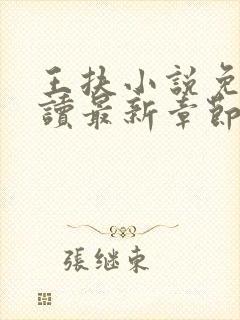 王扶小說免
讀最新章節
張继東